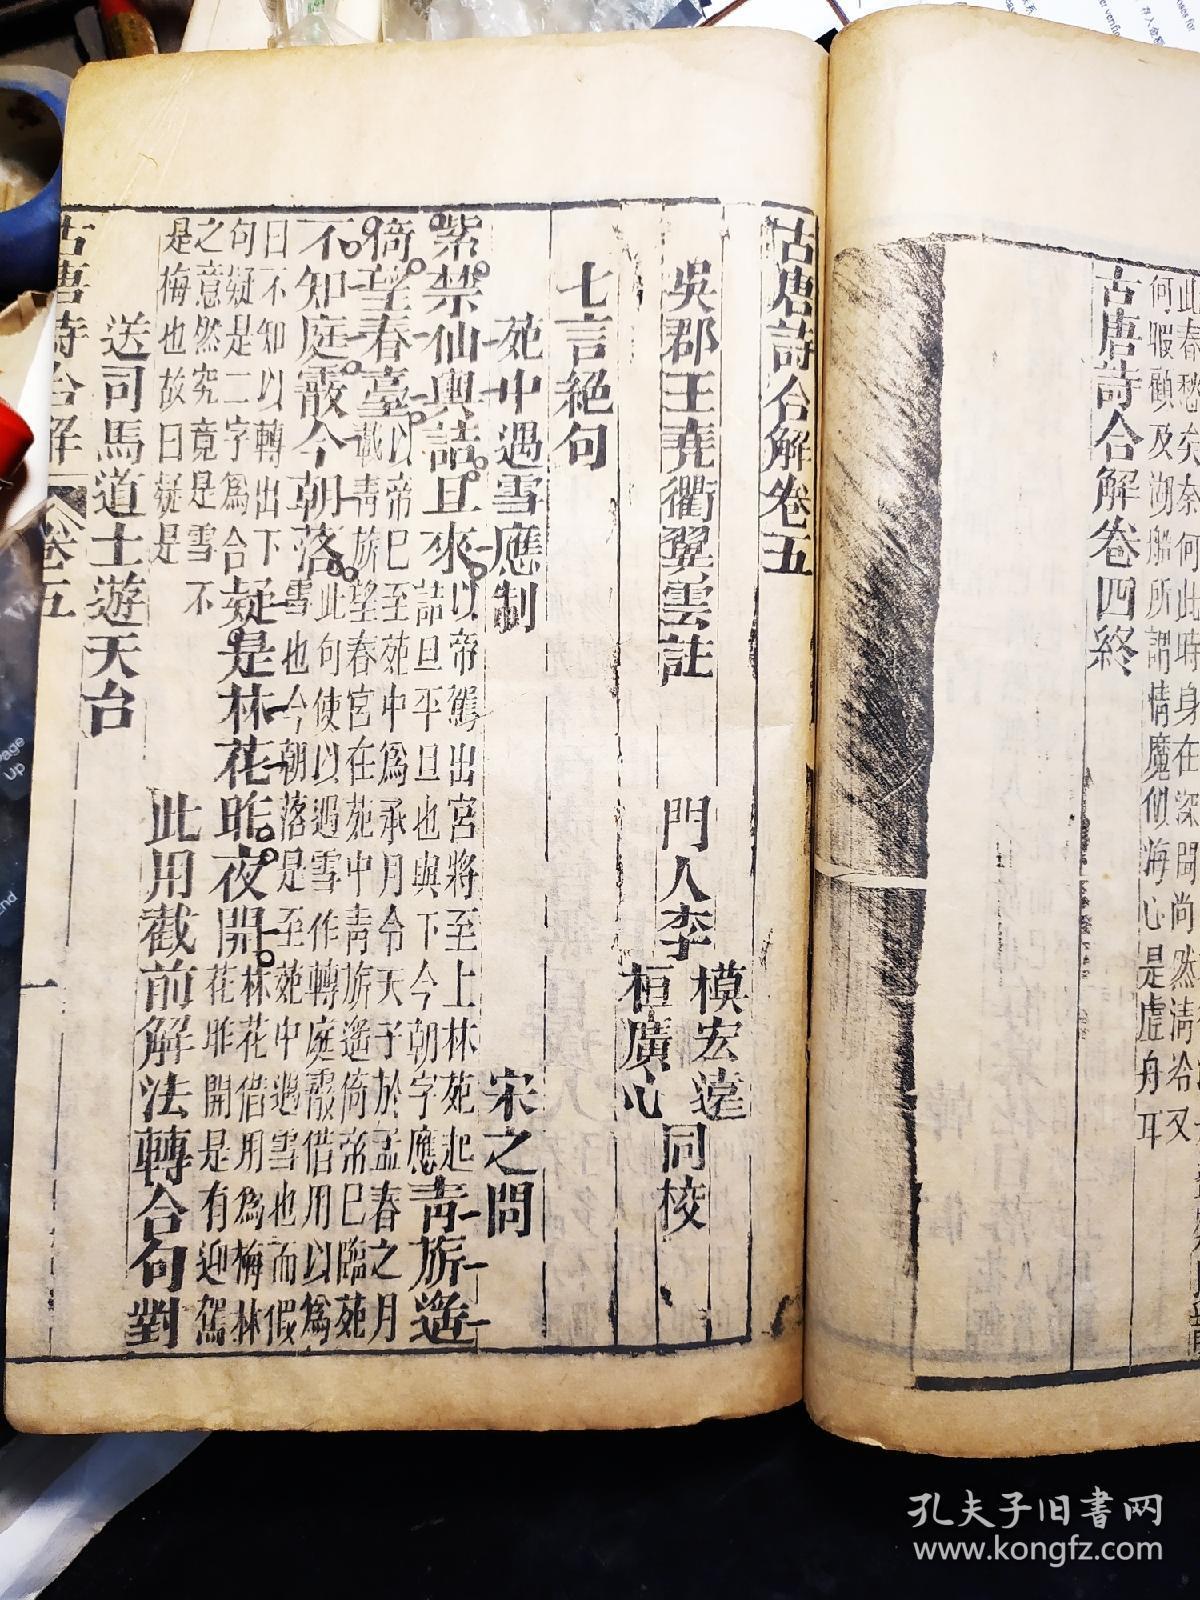 此春愁矣奈何此時身在深閨尚然清冷又
何暇顧及湖船所謂情魔似海心是虛舟耳
古唐詩合解卷四終
古唐詩合解卷五
吳郡王堯衢翼雲註
門人李
模宏遠
桓廣心
同校
七言絕句
苑中遇雪應制
宋之問
紫禁仙輿詰旦來
以帝駕出宮將至上林苑起
詰旦平旦也與下今朝字應
青旂遙
倚望春臺
以帝巳至苑中為承月令天子於孟春之月
載青旂望春宮在苑中青旂遙倚帝巳臨苑
不知庭霰今朝落
此句使以遇雪作轉庭霰借用以為
雪也今朝落是至苑中遇雪也而假
曰不知以轉出下
句疑是二字為合
疑是林花昨夜開
林花借用為梅林
花昨開是有迎駕
之意然究竟是雪不
是梅也故曰疑是
此用截前解法轉合句對
送司馬道士遊天台
古唐詩合解
卷五
一
孔夫子旧书网
www.kongfz.com
Page
Up
End